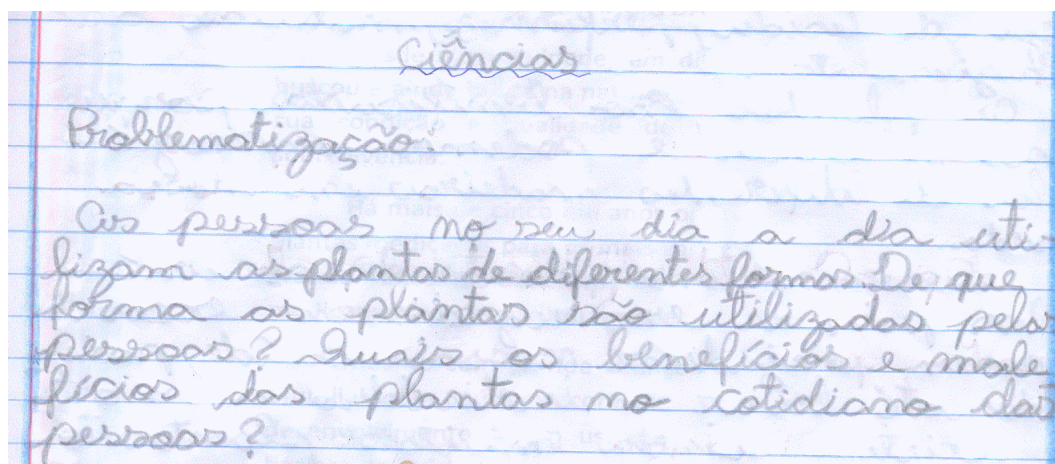 Ciências
Problematização:
As pessoas no seu dia a dia uti-
lizam as plantas de diferentes formas. De que
forma as plantas são utilizadas pelas
pessoas? Quais os benefícios e male
fícios das plantas no cotidiano das
pessoas?